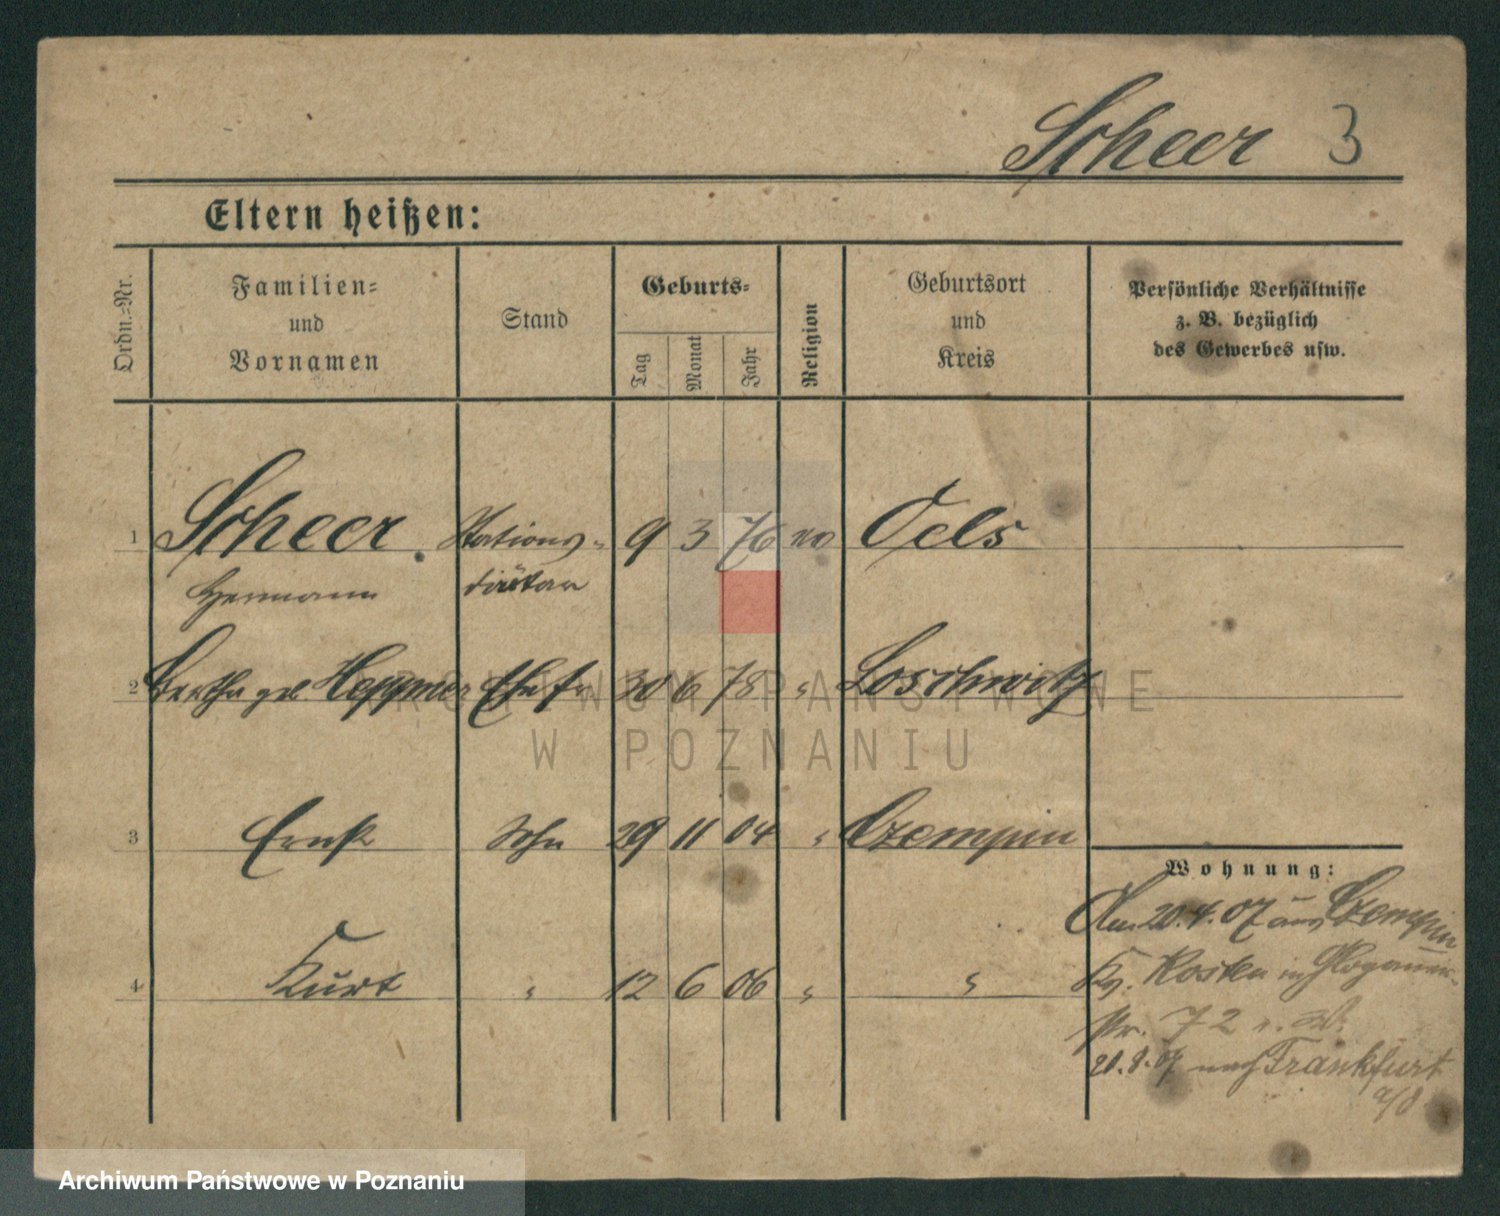 Scheer 3
Eltern heißen:
Ordn.=Nr.
Familien=
und
Vornamen
Stand
Geburts=
Tag
Monat
Jahr
Religion
Geburtsort
und
Kreis
Persönliche Verhältnisse
z. B. bezüglich
des Gewerbes usw.
1 Scheer. Stations- 9 3 76 Oels
Hermann diätar
2 Bertha geb Heppner Ehefr 30 6 78 " Loschwitz
3 Ernst Sohn 29 11 04 " Czempin
4 Kurt " 12 6 06 " "
Wohnung:
Am 20.4.07 aus Czempin
Kr. Kosten in Glogauer-
str. 72
20.8.07 nach Frankfurt
a/O
ARCHIWUM PAŃSTWOWE
W POZNANIU
Archiwum Państwowe w Poznaniu